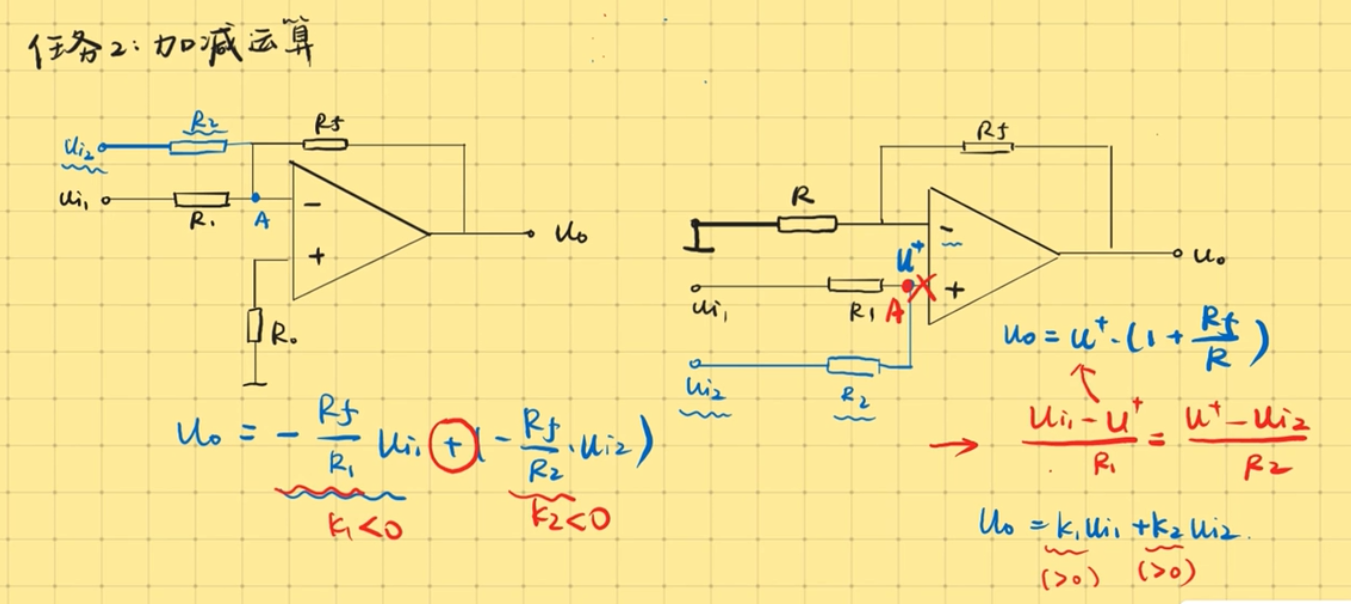 任务2:加减运算
R₂
Rf
ui₂
ui₁
R₁
A
-
+
R₀
u₀
u₀ = - Rf/R₁ ui₁ + (- Rf/R₂ · ui₂)
k₁<0
k₂<0
Rf
R
-
u⁺
+
u₀
ui₁
R₁
A
ui₂
R₂
u₀ = u⁺·(1 + Rf/R)
→ (ui₁ - u⁺)/R₁ = (u⁺ - ui₂)/R₂
u₀ = k₁ui₁ + k₂ui₂.
(>0) (>0)